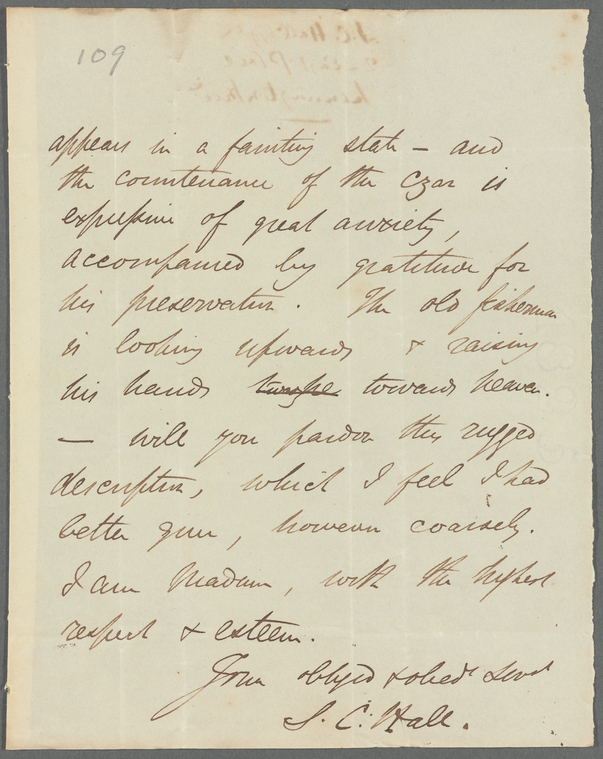 109
appears in a fainting state – and
the countenance of the Czar is
expressive of great anxiety,
accompanied by gratitude for
his preservation. The old fisherman
is looking upwards & raising
his hands towards heaven.
— will you pardon this rugged
description, which I feel I had
better give, however coarsely.
I am Madam, with the highest
respect & esteem.
Your obliged & obedt Servt
S. C. Hall.